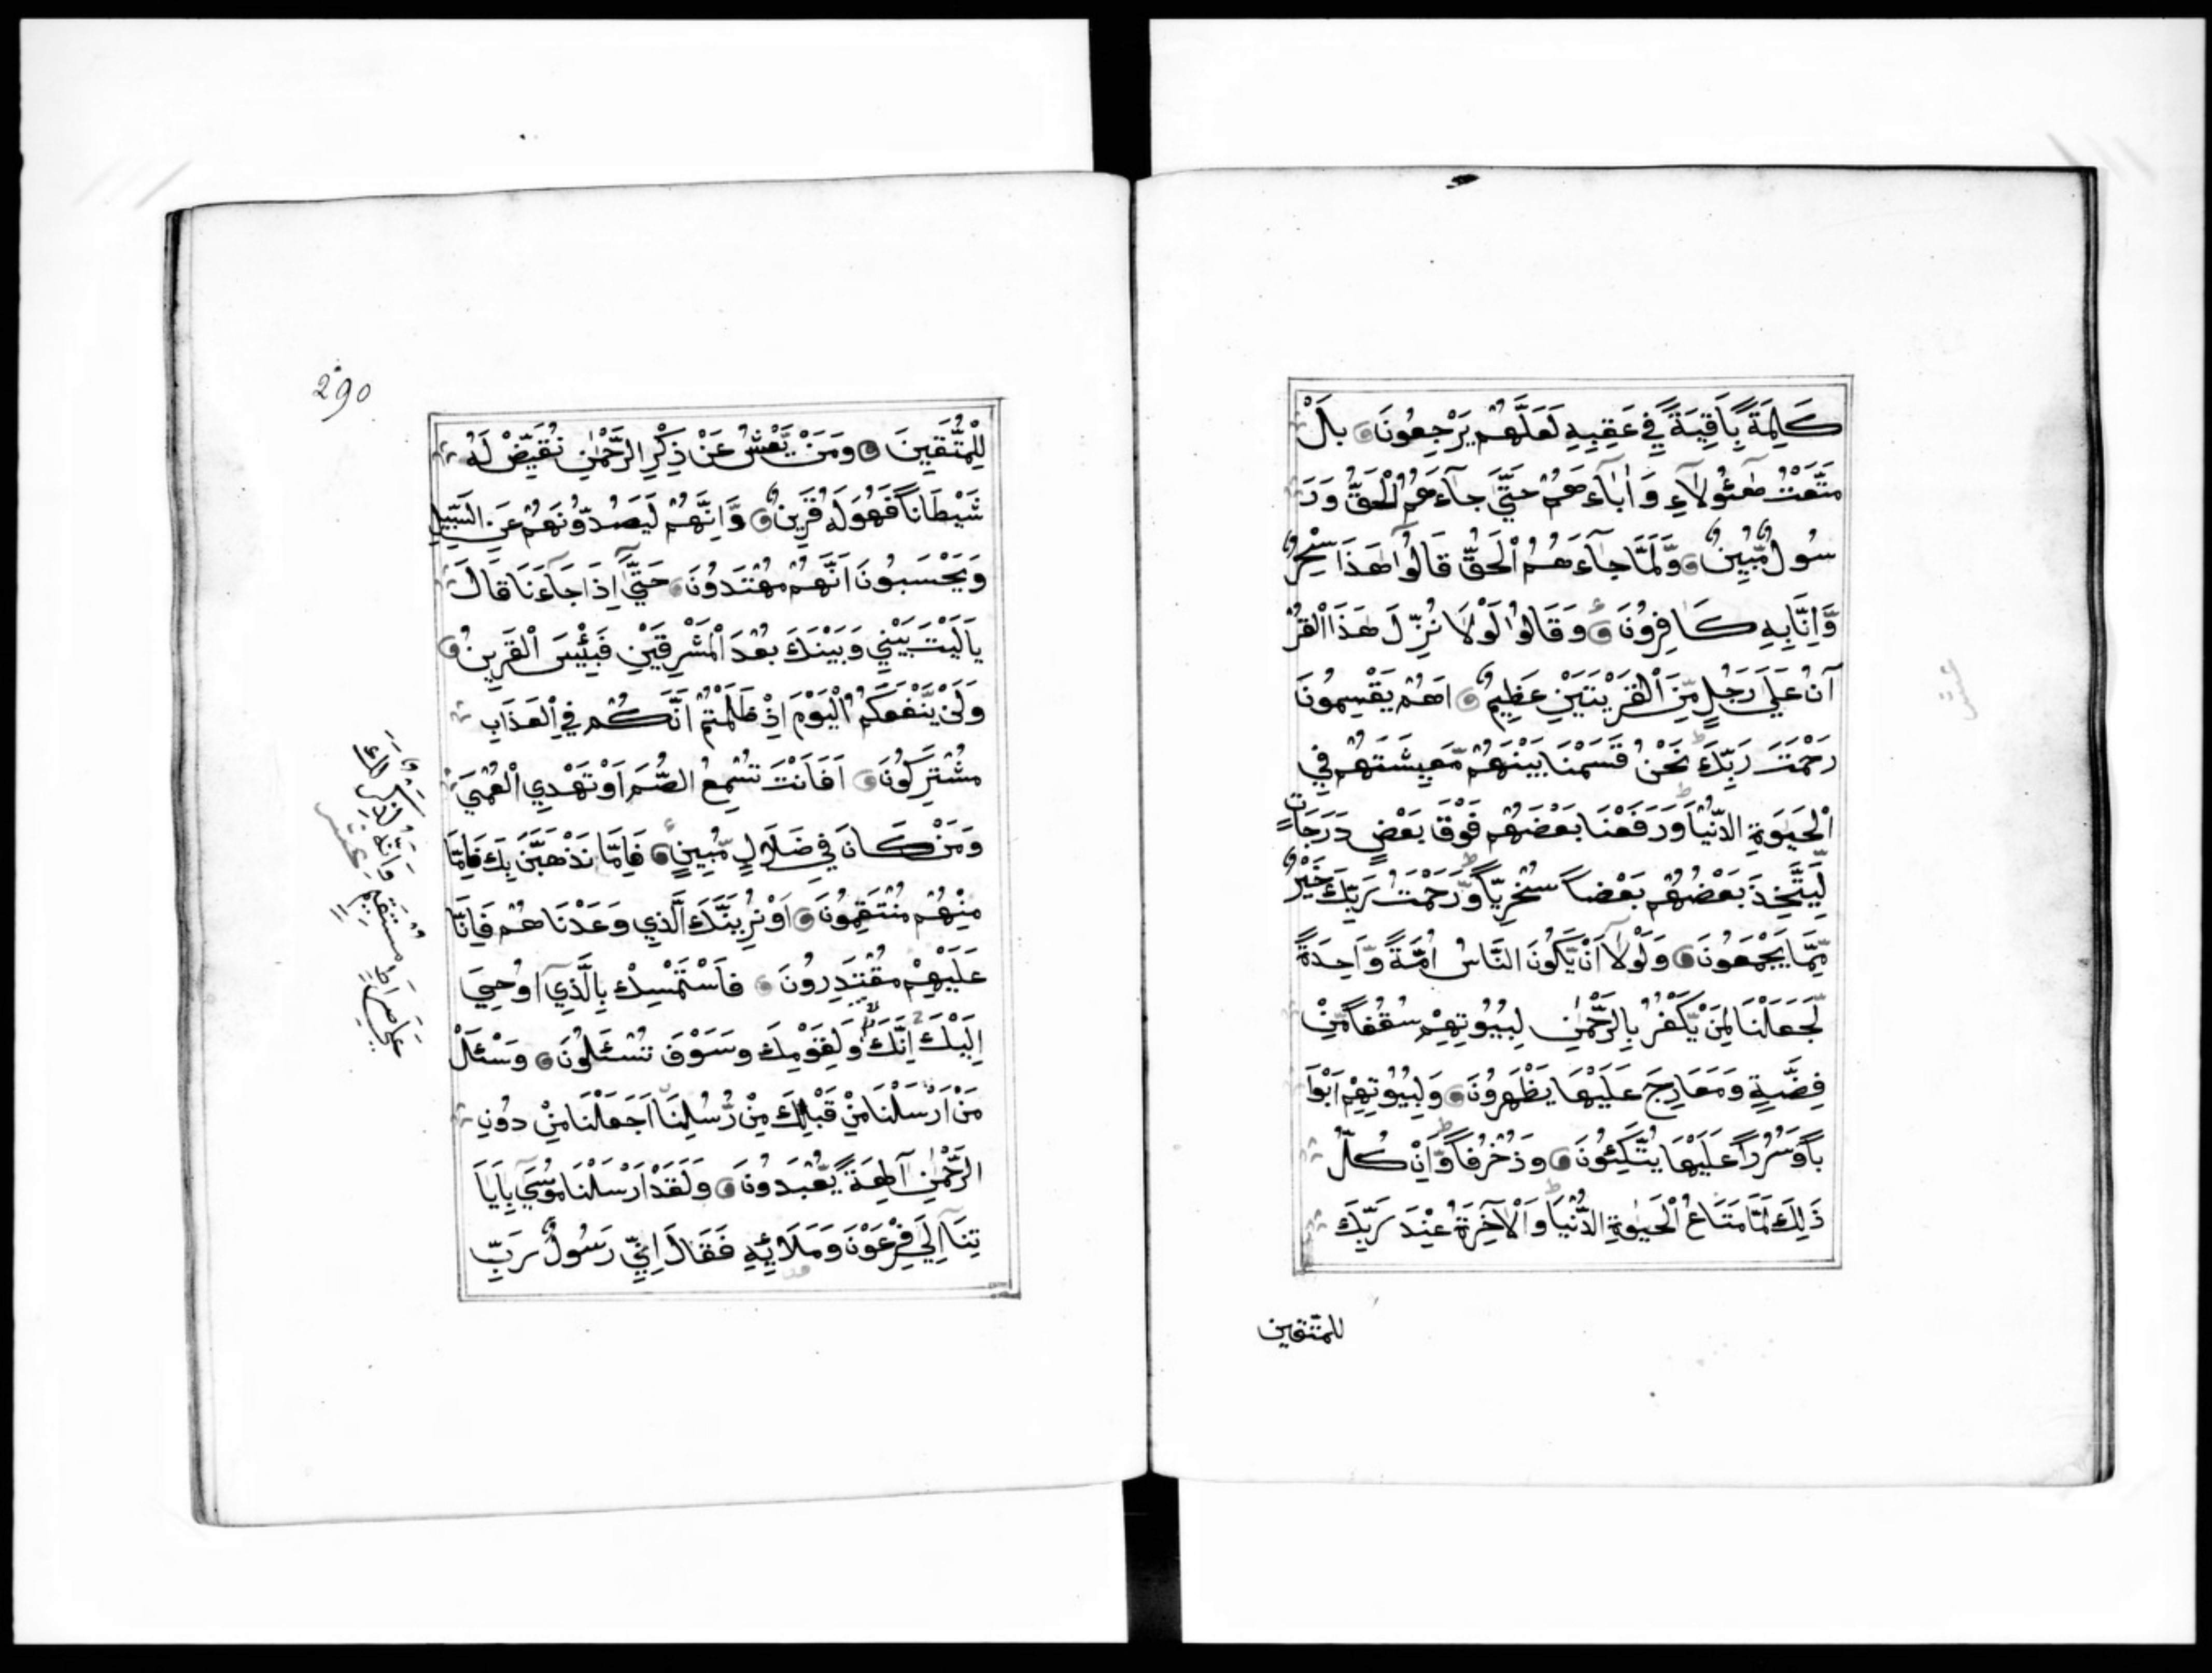 كَلِمَةً بَاقِيَةً فِي عَقِبِهِ لَعَلَّهُمْ يَرْجِعُونَ بَلْ
مَتَّعْتُ هٰٓئُولَآءِ وَاٰبَآءَهُمْ حَتّٰى جَآءَهُمُ الْحَقُّ وَرَ
سُولٌ مُّبِينٌ وَّلَمَّا جَآءَهُمُ الْحَقُّ قَالُوا هٰذَا سِحْرٌ
وَّاِنَّا بِهِ كَافِرُونَ وَقَالُوا لَوْلَا نُزِّلَ هٰذَا الْقُرْ
آنُ عَلَى رَجُلٍ مِّنَ الْقَرْيَتَيْنِ عَظِيمٍ اَهُمْ يَقْسِمُونَ
رَحْمَتَ رَبِّكَ نَحْنُ قَسَمْنَا بَيْنَهُمْ مَّعِيشَتَهُمْ فِي
الْحَيٰوةِ الدُّنْيَا وَرَفَعْنَا بَعْضَهُمْ فَوْقَ بَعْضٍ دَرَجَاتٍ
لِّيَتَّخِذَ بَعْضُهُمْ بَعْضاً سُخْرِيّاً وَّرَحْمَتُ رَبِّكَ خَيْرٌ
مِّمَّا يَجْمَعُونَ وَلَوْلَآ اَنْ يَّكُونَ النَّاسُ اُمَّةً وَّاحِدَةً
لَّجَعَلْنَا لِمَنْ يَّكْفُرُ بِالرَّحْمٰنِ لِبُيُوتِهِمْ سُقُفاً مِّنْ
فِضَّةٍ وَمَعَارِجَ عَلَيْهَا يَظْهَرُونَ وَلِبُيُوتِهِمْ اَبْوَا
باً وَّسُرُراً عَلَيْهَا يَتَّكِئُونَ وَزُخْرُفاً وَّاِنْ كُلُّ
ذَلِكَ لَمَّا مَتَاعُ الْحَيٰوةِ الدُّنْيَا وَالْاٰخِرَةُ عِنْدَ رَبِّكَ
للمتقين
290
لِلْمُتَّقِينَ وَمَنْ يَّعْشُ عَنْ ذِكْرِ الرَّحْمٰنِ نُقَيِّضْ لَهُ
شَيْطَاناً فَهُوَ لَهُ قَرِينٌ وَّاِنَّهُمْ لَيَصُدُّونَهُمْ عَنِ السَّبِيلِ
وَيَحْسَبُونَ اَنَّهُمْ مُهْتَدُونَ حَتّٰى اِذَا جَآءَنَا قَالَ
يَالَيْتَ بَيْنِي وَبَيْنَكَ بُعْدَ الْمَشْرِقَيْنِ فَبِئْسَ الْقَرِينُ
وَلَنْ يَّنْفَعَكُمُ الْيَوْمَ اِذْ ظَلَمْتُمْ اَنَّكُمْ فِي الْعَذَابِ
مُشْتَرِكُونَ اَفَاَنْتَ تُسْمِعُ الصُّمَّ اَوْ تَهْدِي الْعُمْيَ
وَمَنْ كَانَ فِي ضَلَالٍ مُّبِينٍ فَاِمَّا نَذْهَبَنَّ بِكَ فَاِنَّا
مِنْهُمْ مُنْتَقِمُونَ اَوْ نُرِيَنَّكَ الَّذِي وَعَدْنَاهُمْ فَاِنَّا
عَلَيْهِمْ مُقْتَدِرُونَ فَاسْتَمْسِكْ بِالَّذِيٓ اُوحِيَ
اِلَيْكَ اِنَّكَ وَلِقَوْمِكَ وَسَوْفَ تُسْئَلُونَ وَسْئَلْ
مَنْ اَرْسَلْنَا مِنْ قَبْلِكَ مِنْ رُّسُلِنَا اَجَعَلْنَا مِنْ دُونِ
الرَّحْمٰنِ آلِهَةً يُّعْبَدُونَ وَلَقَدْ اَرْسَلْنَا مُوسَى بِاٰيَا
تِنَآ اِلَى فِرْعَوْنَ وَمَلَائِهِ فَقَالَ اِنِّي رَسُولُ رَبِّ
عَلَى صِرَاطٍ مُسْتَقِيمٍ وَاِنَّهُ لَذِكْرٌ لَّكَ